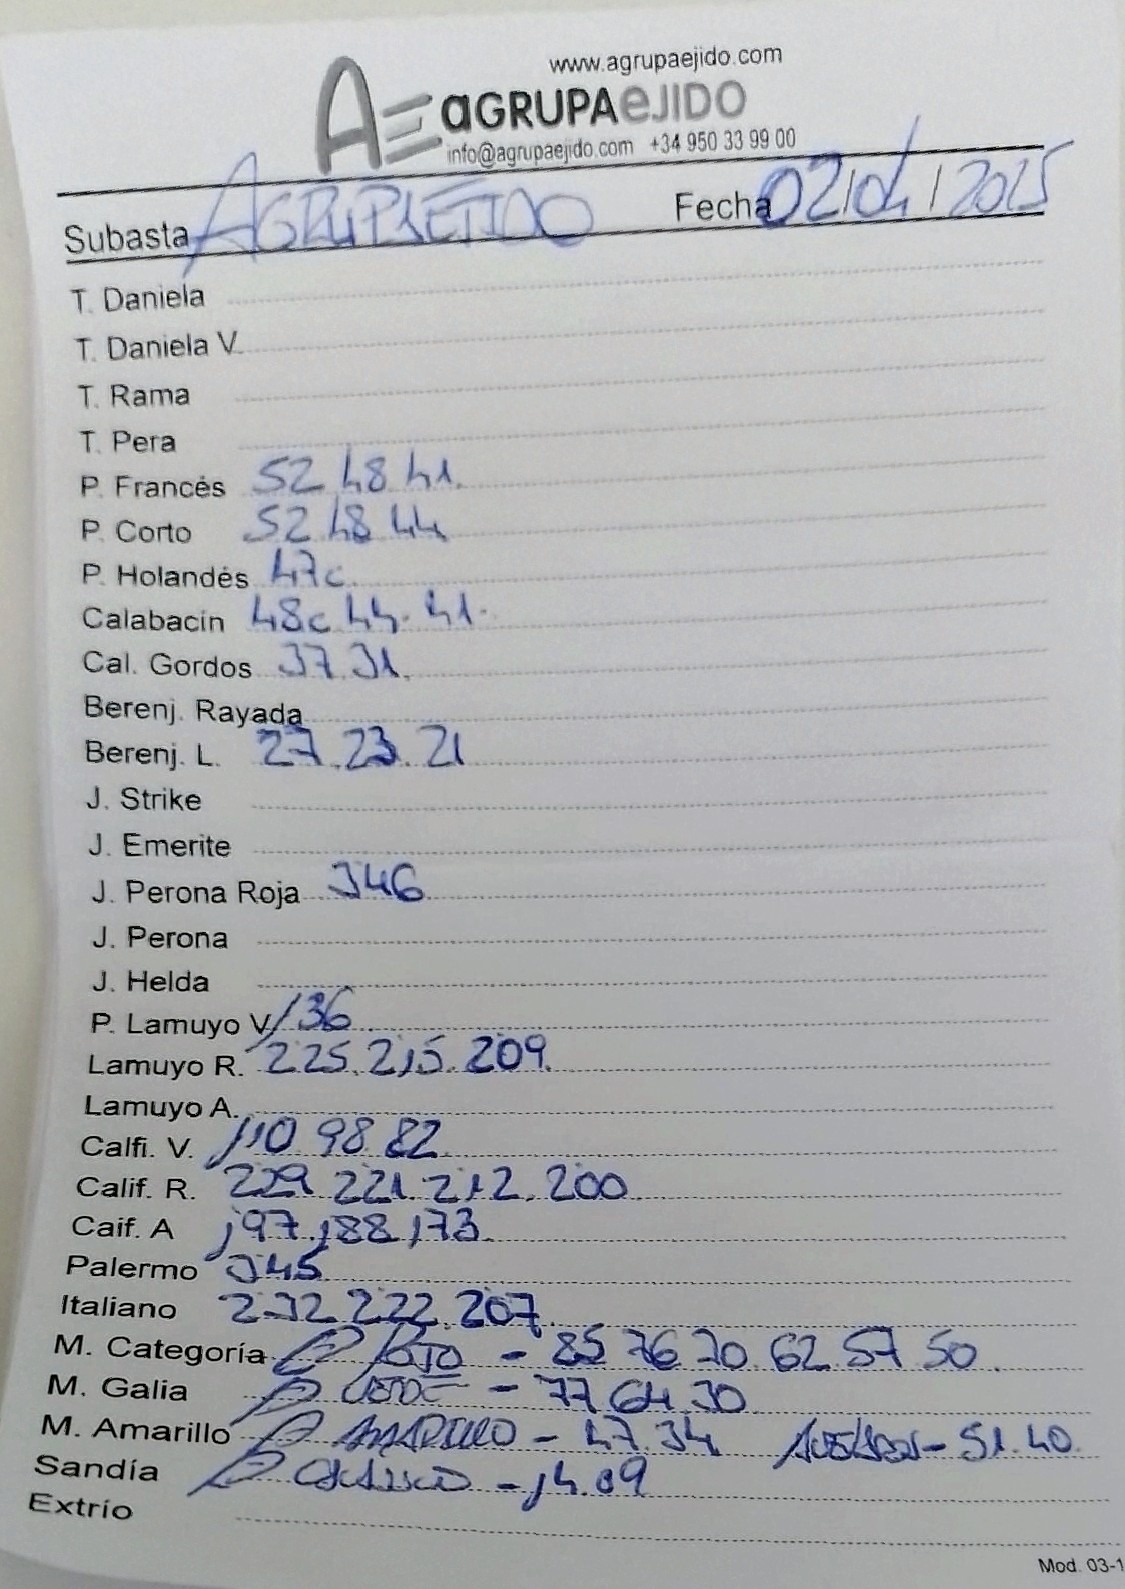 www.agrupaejido.com
AE aGRUPAeJIDO
info@agrupaejido.com +34 950 33 99 00
Subasta AGRUPAEJIDO Fecha 02/04/2025
T. Daniela
T. Daniela V.
T. Rama
T. Pera
P. Francés 52 48 41.
P. Corto 52 48 44
P. Holandés 47c
Calabacín 48c 44. 41.
Cal. Gordos 37. 31.
Berenj. Rayada
Berenj. L. 27. 23. 21
J. Strike
J. Emerite
J. Perona Roja 346
J. Perona
J. Helda
P. Lamuyo V 136
Lamuyo R. 225. 215. 209.
Lamuyo A.
Calfi. V. 110 98 82
Calif. R. 229 221 212. 200
Caif. A 197. 188 173.
Palermo 345
Italiano 232 222. 207
M. Categoría P Rojo - 85 76 70. 62 57 50.
M. Galia P Verde - 77 64. 30
M. Amarillo P AMARILLO - 47. 34 - 51. 40.
Sandía - 14. 09
Extrío
Mod. 03-1